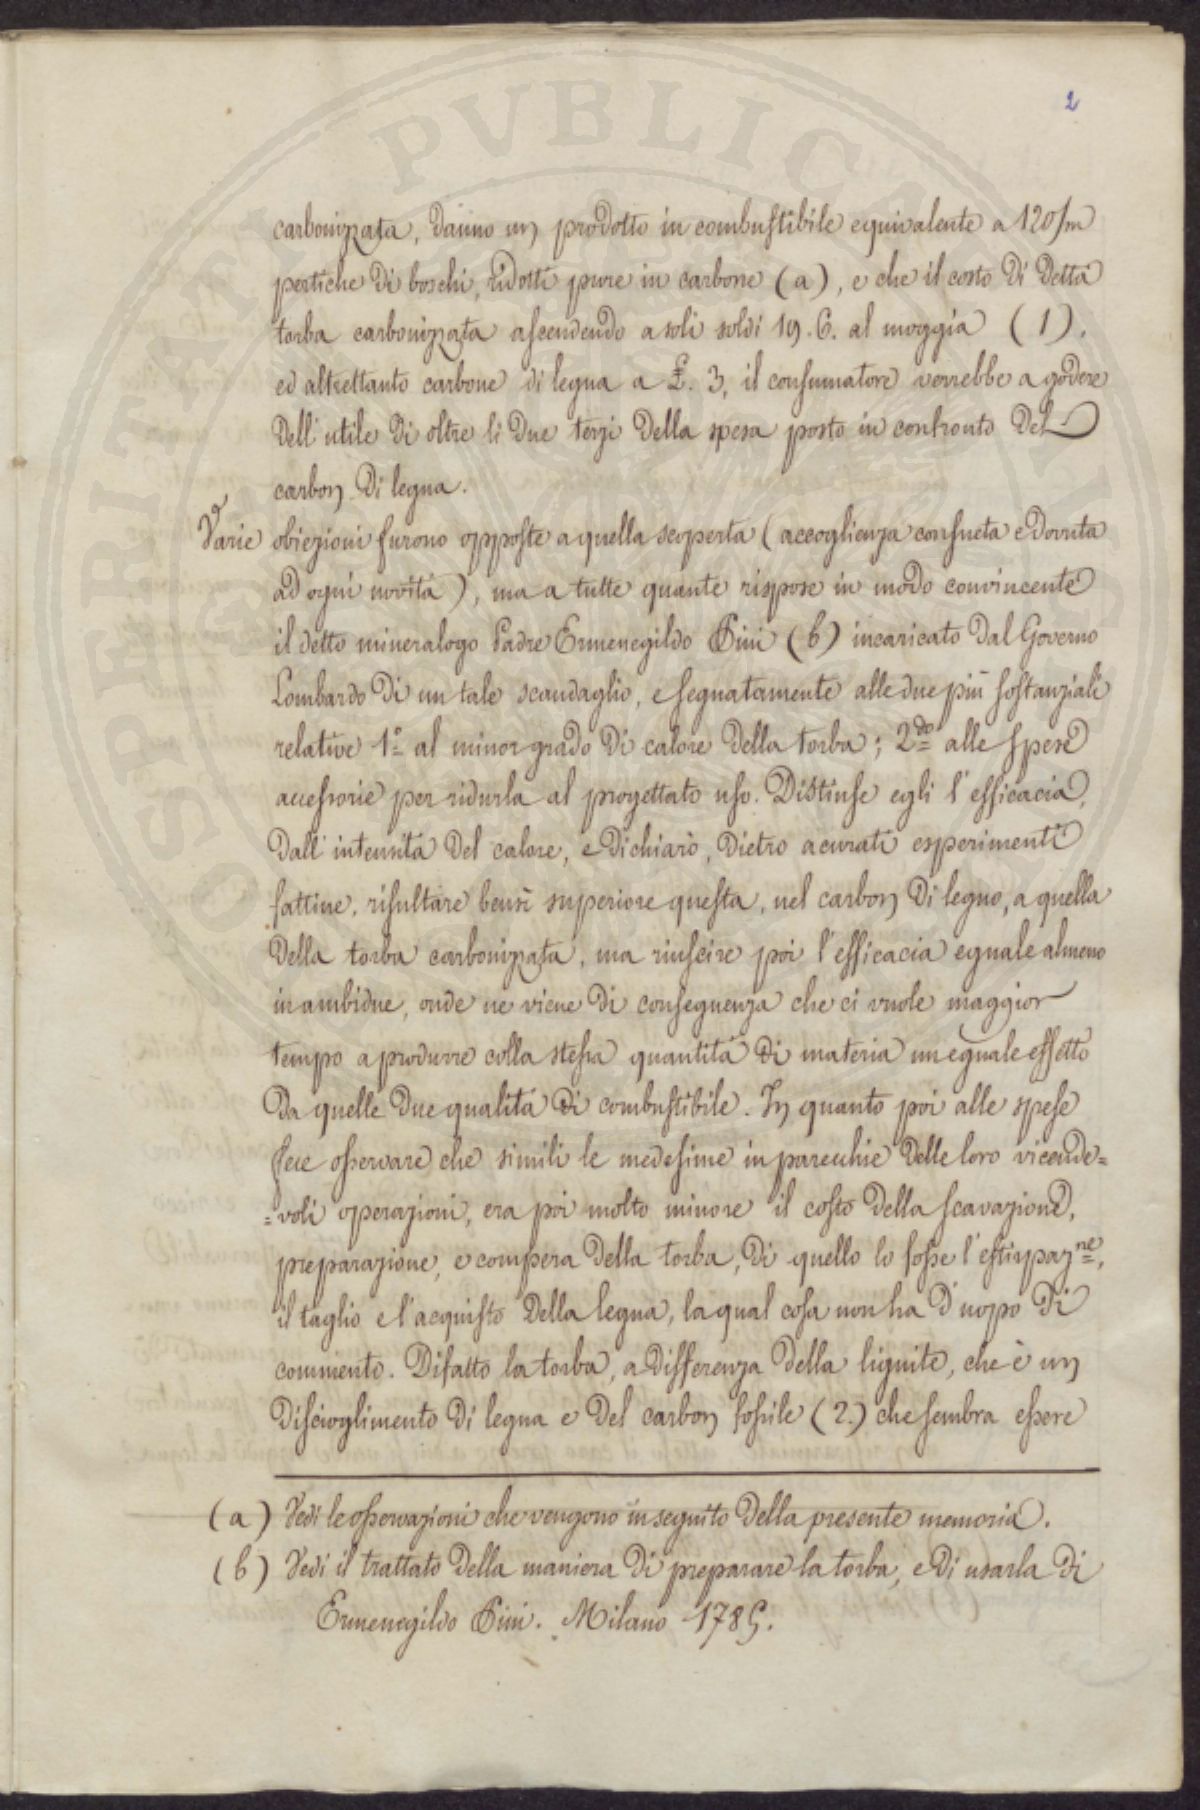 2
carbonizzata, danno un prodotto in combustibile equivalente a 120/m
pertiche di boschi, ridotti pure in carbone (a), e che il costo di detta
torba carbonizzata ascendendo a soli soldi 19.6. al moggia (1).
ed altrettanto carbone di legna a £. 3, il consumatore verrebbe a godere
dell'utile di oltre li due terzi della spesa posto in confronto del
carbon di legna.
Varie obiezioni furono opposte a quella scoperta (accoglienza consueta e dovuta
ad ogni novità), ma a tutte quante rispose in modo convincente
il detto mineralogo Padre Ermenegildo Pini (b) incaricato dal Governo
Lombardo di un tale scandaglio, e segnatamente alle due più sostanziali
relative 1.° al minor grado di calore della torba; 2.do alle spese
accessorie per ridurla al progettato uso. Distinse egli l'efficacia,
dall'intensità del calore, e dichiarò, dietro acurati esperimenti
fattine, risultare bensì superiore questa, nel carbon di legno, a quella
della torba carbonizzata, ma riuscire poi l'efficacia eguale almeno
in ambidue, onde ne viene di conseguenza che ci vuole maggior
tempo a produrre colla stessa quantità di materia un eguale effetto
da quelle due qualità di combustibile. In quanto poi alle spese
fece osservare che simili le medesime in parecchie delle loro vicende=
=voli operazioni, era poi molto minore il costo della scavazione,
preparazione, e compera della torba, di quello lo fosse l'estirpaz.ne,
il taglio e l'acquisto della legna, la qual cosa non ha d'uopo di
commento. Difatto la torba, a differenza della lignite, che è un
discioglimento di legna e del carbon fossile (2.) che sembra essere
(a) Vedi le osservazioni che vengono in seguito della presente memoria.
(b) Vedi il trattato della maniera di preparare la torba, e di usarla di
Ermenegildo Pini. Milano 1785.